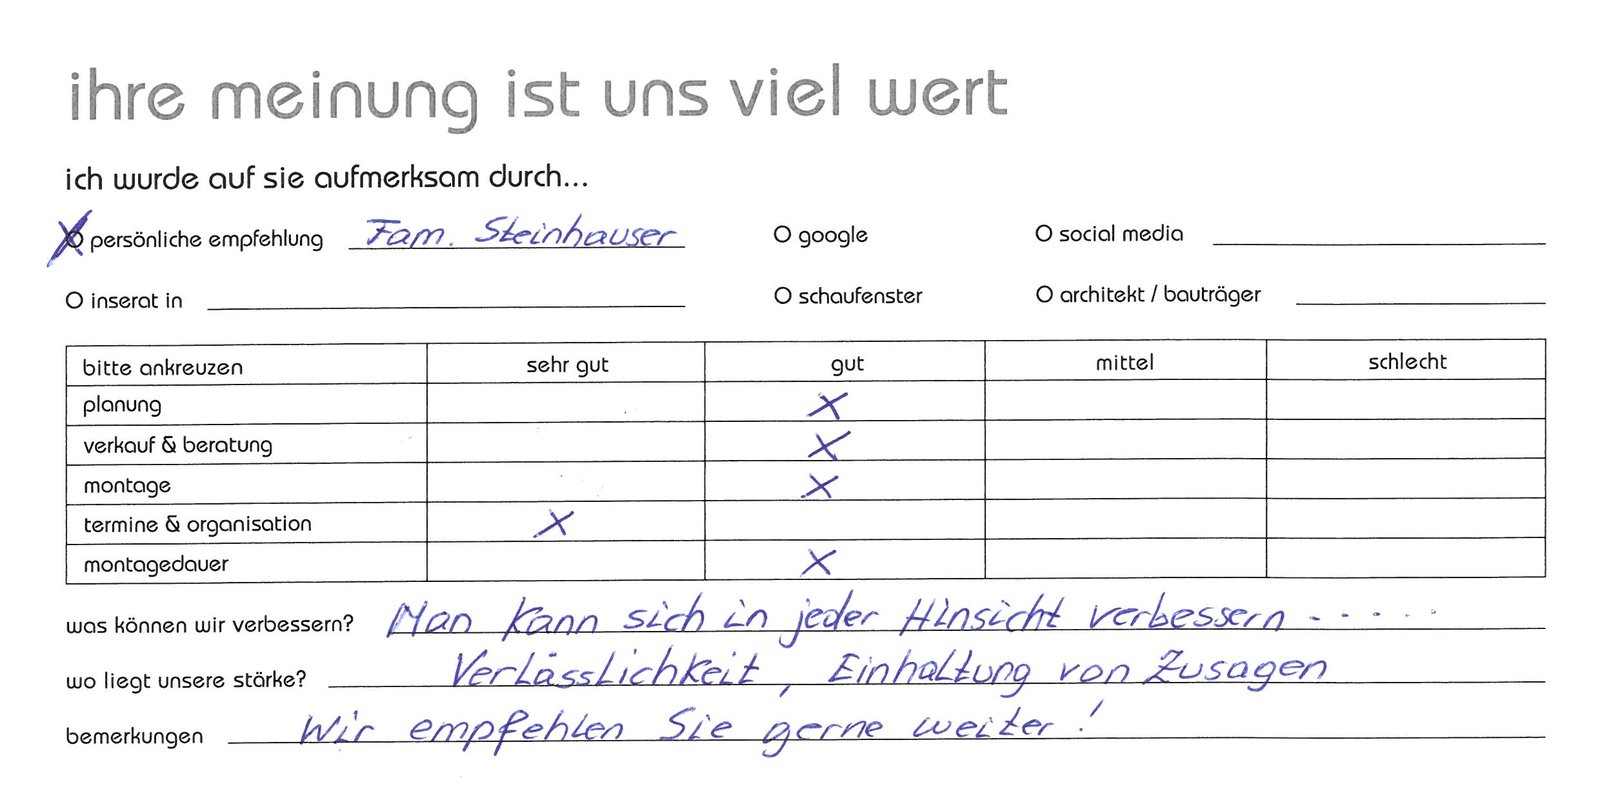 ihre meinung ist uns viel wert
ich wurde auf sie aufmerksam durch...
X O persönliche empfehlung Fam. Steinhauser O google O social media
O inserat in O schaufenster O architekt / bauträger
bitte ankreuzen sehr gut gut mittel schlecht
planung X
verkauf & beratung X
montage X
termine & organisation X
montagedauer X
was können wir verbessern? Man kann sich in jeder Hinsicht verbessern - - - - -
wo liegt unsere stärke? Verlässlichkeit, Einhaltung von Zusagen
bemerkungen Wir empfehlen Sie gerne weiter!